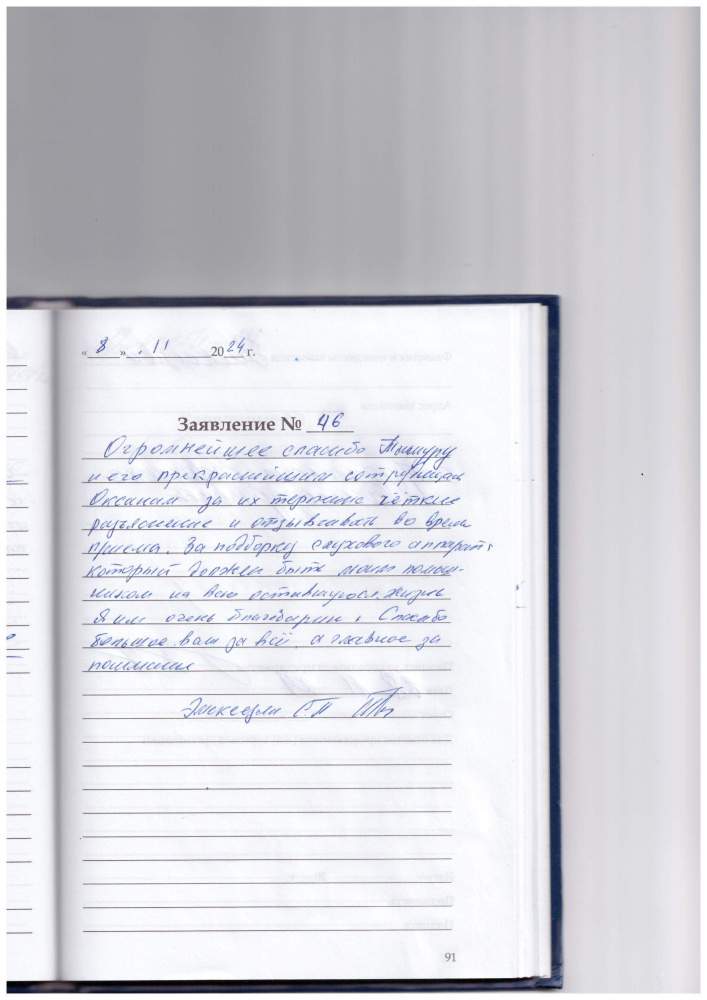 «8» . 11 2024 г.
Заявление № 46
Огромнейшее спасибо Тимуру
и его прекраснейшим сотрудницам
Оксанам за их терпение чёткие
разъяснение и отзывчавость во время
приёма. За подборку слухового аппарата
который должен быть моим помощ-
ником на всю оставшуюся жизнь
Я им очень благодарен. Спасибо
большое вам за всё, а главное за
понимание
С.М
91